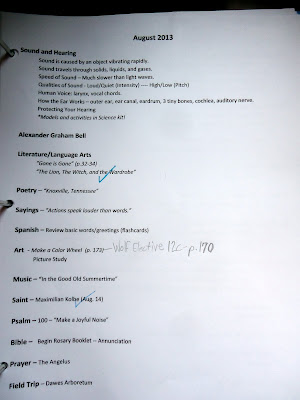 August 2013
Sound and Hearing
Sound is caused by an object vibrating rapidly.
Sound travels through solids, liquids, and gases.
Speed of Sound - Much slower than light waves.
Qualities of Sound - Loud/Quiet (Intensity) ---- High/Low (Pitch)
Human Voice: larynx, vocal chords.
How the Ear Works – outer ear, ear canal, eardrum, 3 tiny bones, cochlea, auditory nerve.
Protecting Your Hearing
*Models and activities in Science kit!
Alexander Graham Bell
Literature/Language Arts
"Gone is Gone" (p.32-34)
"The Lion, The Witch, and the Wardrobe"
Poetry – "Knoxville, Tennessee"
Sayings – "Actions speak louder than words."
Spanish – Review basic words/greetings (flashcards)
Art - Make a Color Wheel (p. 173) — Wolf Elective 12c - p. 170
Picture Study
Music – "In the Good Old Summertime"
Saint – Maximilian Kolbe (Aug. 14)
Psalm – 100 – "Make a Joyful Noise"
Bible – Begin Rosary Booklet – Annunciation
Prayer – The Angelus
Field Trip – Dawes Arboretum